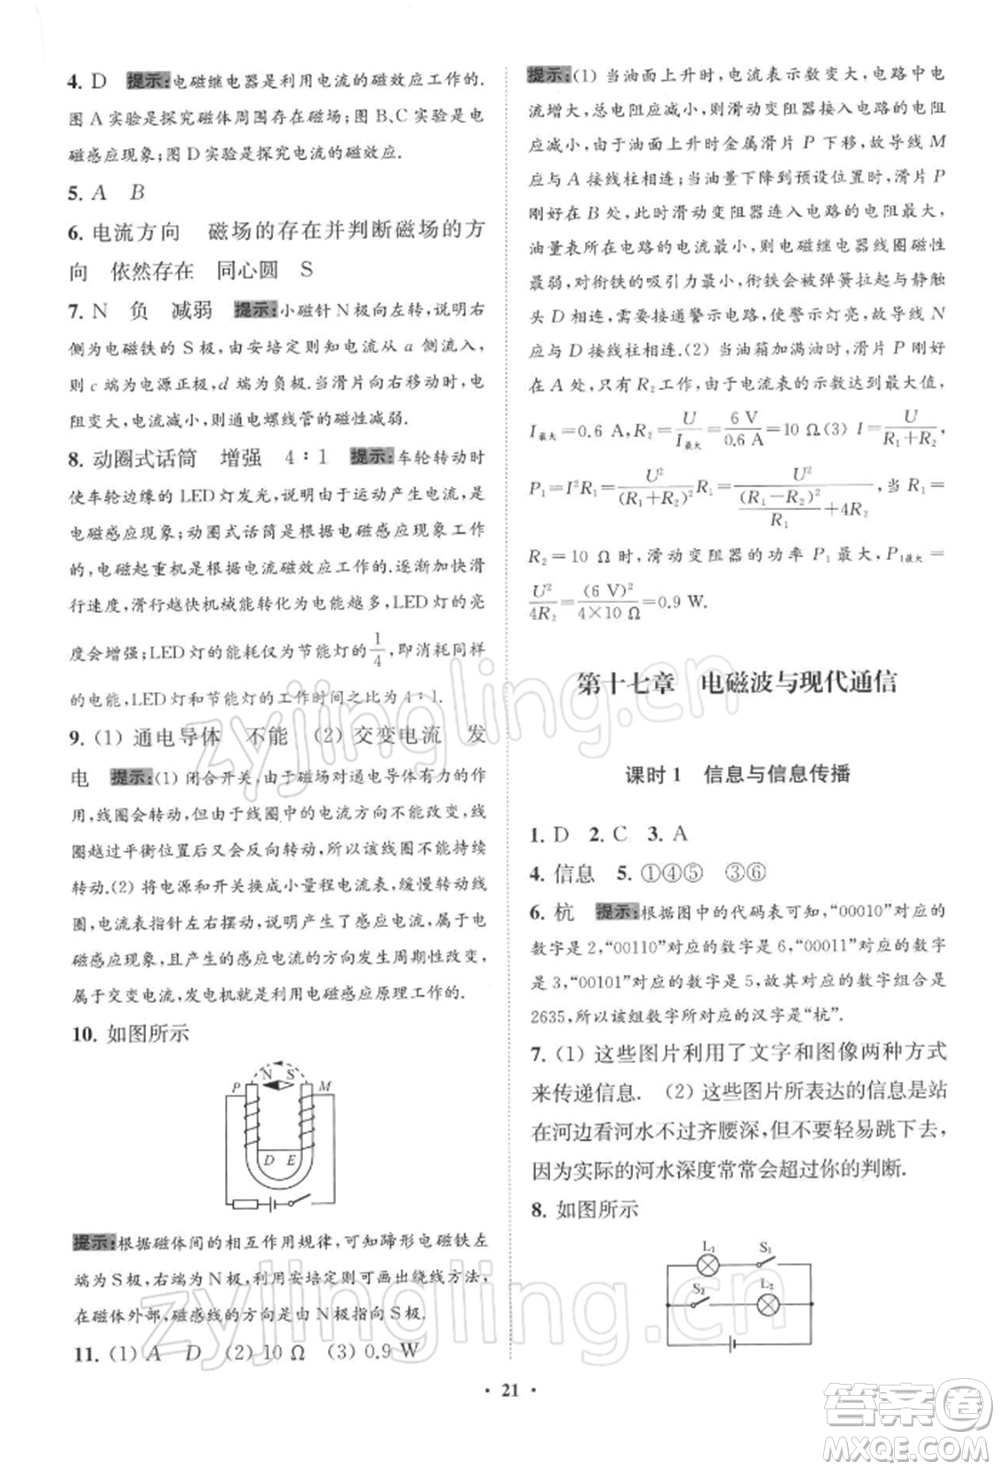 4. D 提示:电磁继电器是利用电流的磁效应工作的.
图 A 实验是探究磁体周围存在磁场;图 B、C 实验是
电磁感应现象;图 D 实验是探究电流的磁效应.
5. A B
6. 电流方向 磁场的存在并判断磁场的方
向 依然存在 同心圆 S
7. N 负 减弱 提示:小磁针 N 极向左转,说明右
侧为电磁铁的 S 极,由安培定则知电流从 a 侧流入,
则 c 端为电源正极,d 端为负极.当滑片向右移动时,
电阻变大,电流减小,则通电螺线管的磁性减弱.
8. 动圈式话筒 增强 4∶1 提示:车轮转动时
使车轮边缘的 LED 灯发光,说明由于运动产生电流,为
电磁感应现象;动圈式话筒是根据电磁感应现象工作
的,电磁起重机是根据电流磁效应工作的.加快滑
行速度,滑行越快机械能转化为电能越多,LED 灯的亮
度会增强;LED 灯的能耗仅为节能灯的 1/4,即消耗同样
的电能,LED 灯和节能灯的工作时间之比为 4∶1.
9. (1) 通电导体 不能 (2) 交变电流 发
电 提示:(1) 闭合开关,由于磁场对通电导体有力的作
用,线圈会转动,但由于该线圈中的电流方向不能改变,线
圈越过平衡位置后又反向转动,所以该线圈不能持续
转动.(2) 将电源和开关换成小量程电流表,缓慢转动线
圈,电流表指针左右摆动,说明产生了感应电流,属于电
磁感应现象,且产生的感应电流的方向发生周期性改变,
属于交变电流,发电机就是利用电磁感应原理工作的.
10. 如图所示
N S
P M
D E
提示:根据磁体间的相互作用规律,可知蹄形电磁铁左
端为 S 极,右端为 N 极,利用安培定则可画出绕线方法,
在磁体外部,磁感线的方向是由 N 极指向 S 极.
11. (1) A D (2) 10 Ω (3) 0.9 W
提示:(1) 当油面上升时,电流表示数变大,电路中电
流增大,总电阻应减小,则滑动变阻器接入电路的电阻
应减小,由于油面上升时金属滑片 P 下移,故导线 M
应与 A 接线柱相连;当油量下降到预设位置时,滑片 P
刚好在 B 处,此时滑动变阻器连入电路的电阻最大,
油量表所在电路的电流最小,则电磁继电器线圈磁性最
小,对衔铁的吸引力最小,衔铁会被弹簧拉起从而与触
头 D 相连,需要接通警示电路,使警示灯亮,故导线 N
应与 D 接线柱相连.(2) 当油箱加满油时,滑片 P 刚好
在 A 处,只有 R₂ 工作,由于电流表的示数达最大值,
I最大=0.6 A,R₂=U/I最大=6 V/0.6 A=10 Ω(3) I=U/(R₁+R₂),
P₁=I²R₁=U²/(R₁+R₂)² R₁=U²/((R₁-R₂)²/R₁+4R₂),当 R₁=
R₂=10 Ω 时,滑动变阻器的功率 P₁ 最大,P₁最大=
U²/4R₂=(6 V)²/(4×10 Ω)=0.9 W.
第十七章 电磁波与现代通信
课时 1 信息与信息传播
1. D 2. C 3. A
4. 信息 5. ①④⑤ ③⑥
6. 杭 提示:根据图中的代码表可知,"00010"对应的
数字是 2,"00110"对应的数字是 6,"00011"对应的数字
是 3,"00101"对应的数字是 5,故其对应的数字组合是
2635,所以该组数字所对应的汉字是"杭".
7. (1) 这些图片利用了文字和图像两种方式
来传递信息. (2) 这些图片所表达的信息是站
在河边看河水不过齐腰深,但不要轻易跳下去,
因为实际的河水深度常常会超过你的判断.
8. 如图所示
L₁ S₁
S₂ L₂
• 21 •
zyjingling.cn
zyjingling.cn
答案圈
MXQE.COM